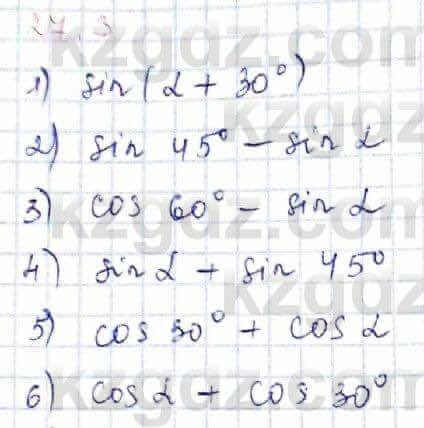 37.3
1) sin(α + 30°)
2) sin 45° - sin α
3) cos 60° - sin α
4) sin α + sin 45°
5) cos 30° + cos α
6) cos α + cos 30°
kzgdz.com